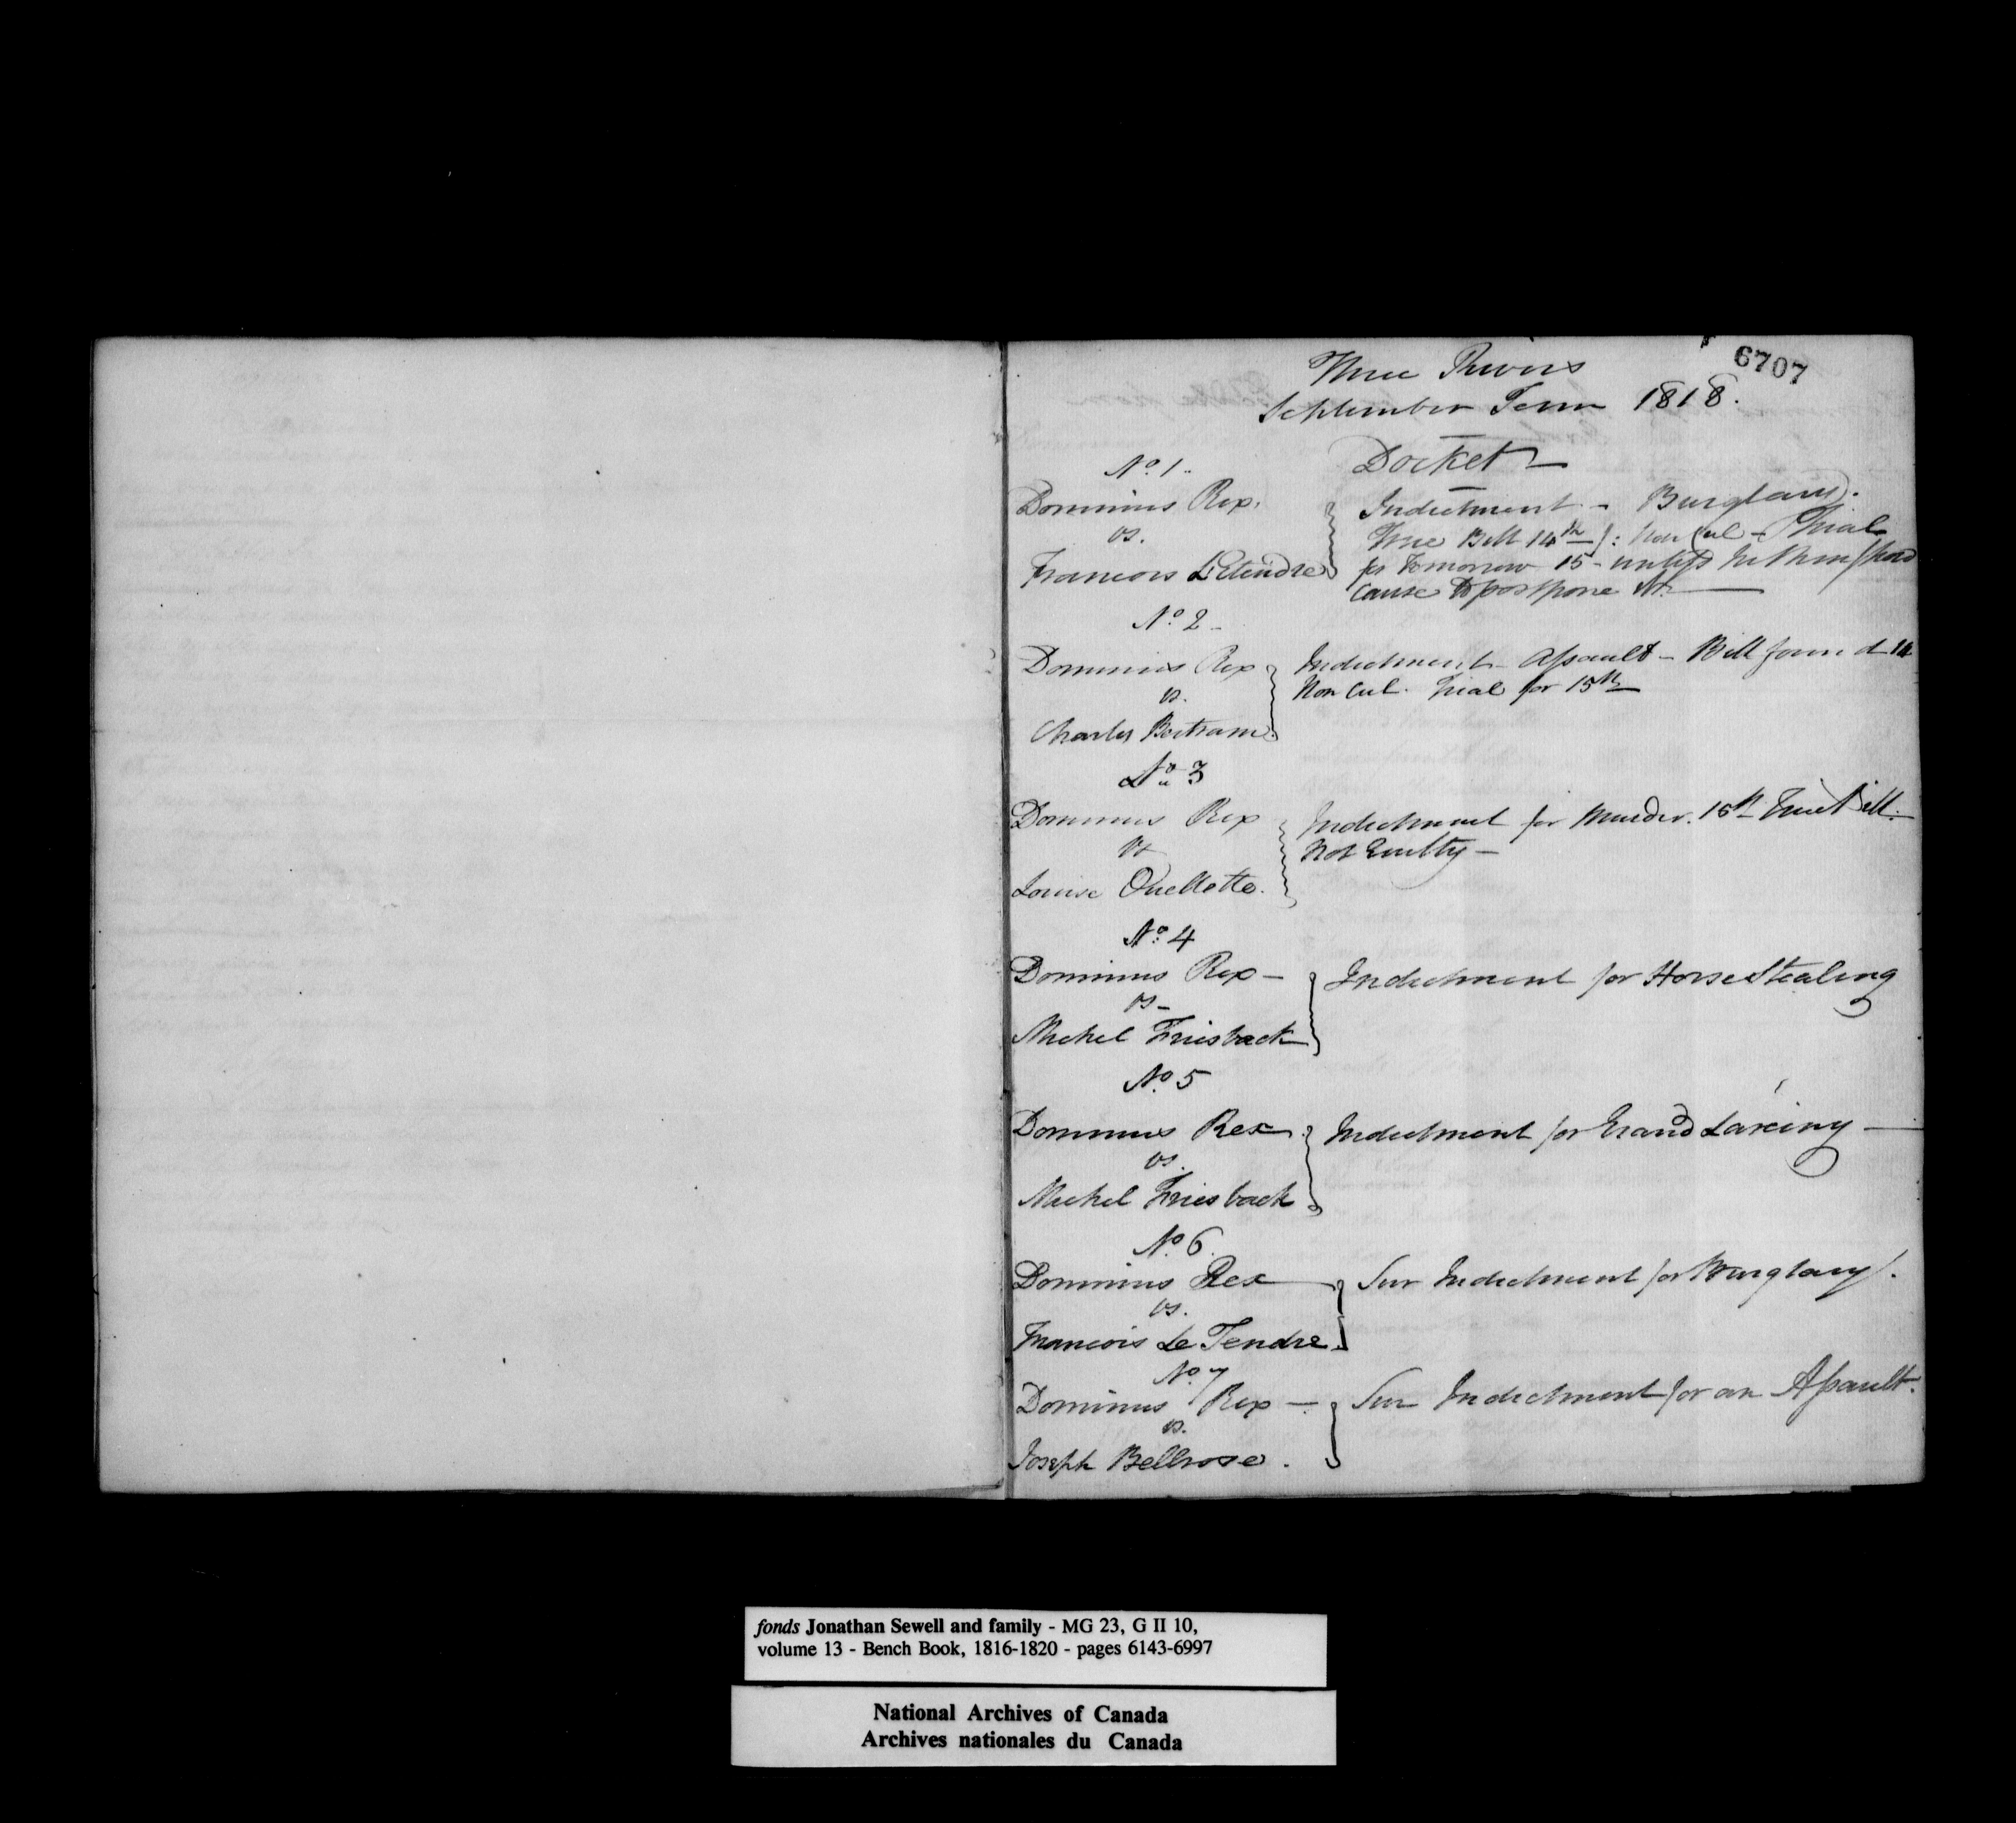 6707
Three Rivers
September Term 1818.
Docket
No. 1.
Dominus Rex.
vs.
Francois L'Etendre
Indictment - Burglary.
True Bill 14th : Non Cul - Trial
for Tomorrow 15 - unless he then shew
cause to postpone it
No. 2
Dominus Rex
vs.
Charles Bertram
Indictment - Assault - Bill found 14
Non Cul. Trial for 15th
No. 3
Dominus Rex
vs
Louise Ouellette.
Indictment for Murder. 15th True Bill.
Not Guilty -
No. 4
Dominus Rex -
vs -
Michel Friesback
Indictment for Horse Stealing
No. 5
Dominus Rex
vs.
Michel Friesback
Indictment for Grand Larceny -
No. 6.
Dominus Rex
vs.
Francois Le Tendre
Sur Indictment for Burglary.
No. 7
Dominus Rex -
vs.
Joseph Bellrose.
Sur Indictment for an Assault.
fonds Jonathan Sewell and family - MG 23, G II 10,
volume 13 - Bench Book, 1816-1820 - pages 6143-6997
National Archives of Canada
Archives nationales du Canada